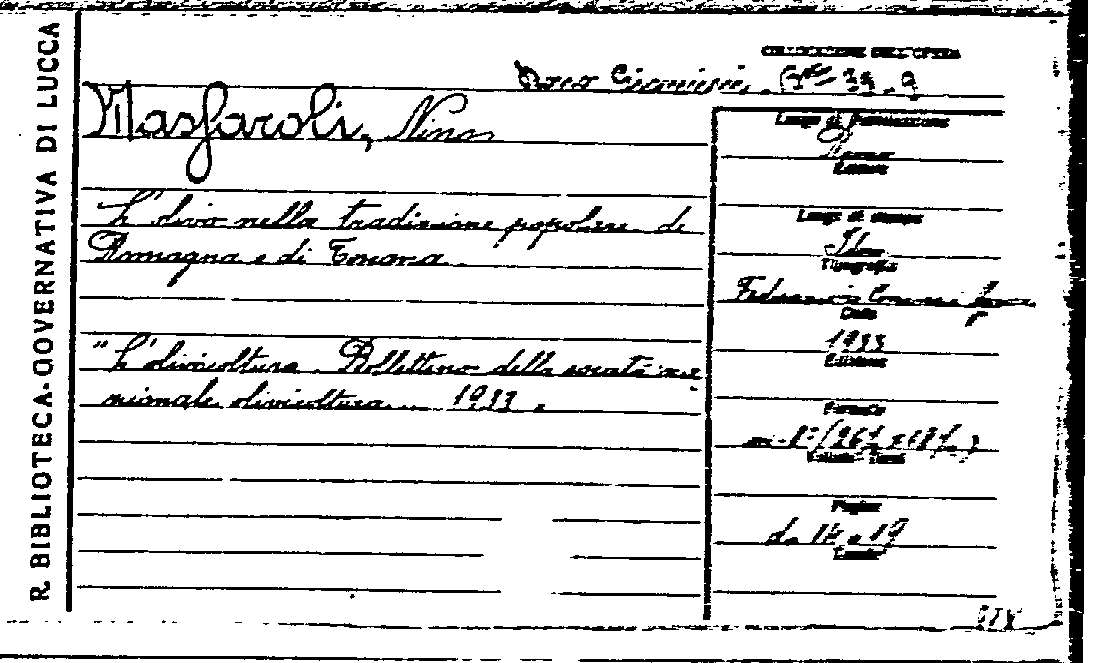 R. BIBLIOTECA-GOVERNATIVA DI LUCCA
COLLOCAZIONE DELL'OPERA
Masfaroli, Nino
L'olivo nella tradizione popolare di
Romagna e di Toscana.
"L'olivicoltura. Bollettino della società na-
zionale olivicoltura... 1933.
Luogo di pubblicazione
Roma
Editore
Luogo di stampa
Idem
Tipografia
Data
1933
Edizione
Formato
Pagine
da 14 a 19